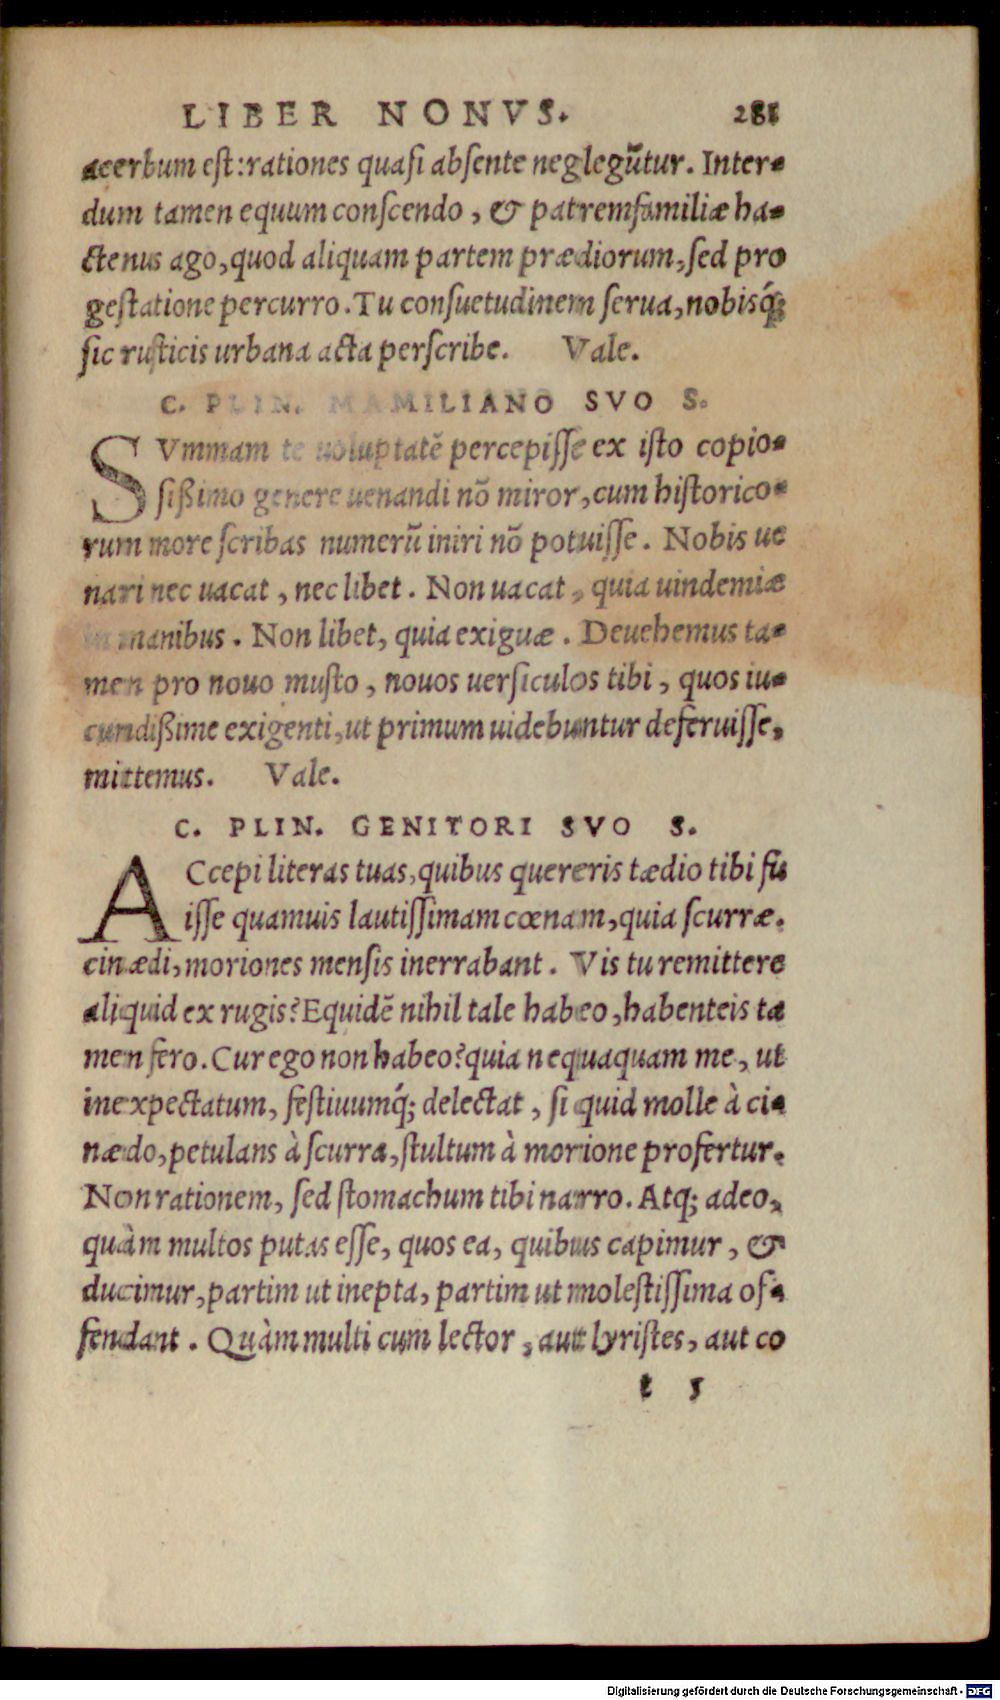 LIBER NONVS. 281
acerbum est: rationes quasi absente neglegūtur. Inter-
dum tamen equum conscendo, & patremfamiliæ ha-
ctenus ago, quod aliquam partem prædiorum, sed pro
gestatione percurro. Tu consuetudinem serua, nobisq́;
sic rusticis urbana acta perscribe. Vale.
C. PLIN. MAMILIANO SVO S.
SVmmam te uoluptatē percepisse ex isto copio-
sißimo genere uenandi nō miror, cum historico-
rum more scribas numerū iniri nō potuisse. Nobis ue
nari nec uacat, nec libet. Non uacat, quia uindemiæ
in manibus. Non libet, quia exiguæ. Deuehemus ta-
men pro nouo musto, nouos uersiculos tibi, quos iu-
cundißime exigenti, ut primum uidebuntur deferuisse,
mittemus. Vale.
C. PLIN. GENITORI SVO S.
ACcepi literas tuas, quibus quereris tædio tibi fu
isse quamuis lautissimam cœnam, quia scurræ.
cinædi, moriones mensis inerrabant. Vis tu remittere
aliquid ex rugis? Equidē nihil tale habeo, habenteis ta
men fero. Cur ego non habeo? quia nequaquam me, ut
inexpectatum, festiuumq́; delectat, si quid molle à ci-
nædo, petulans à scurra, stultum à morione profertur.
Non rationem, sed stomachum tibi narro. Atq; adeo,
quàm multos putas esse, quos ea, quibus capimur, &
ducimur, partim ut inepta, partim ut molestissima of-
fendant. Quàm multi cum lector, aut lyristes, aut co
t 5
Digitalisierung gefördert durch die Deutsche Forschungsgemeinschaft - DFG